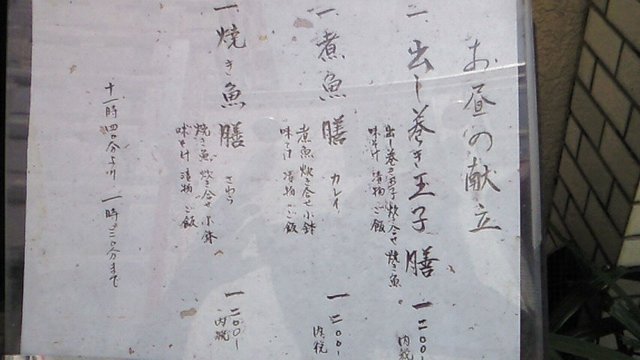 お昼の献立
一 出し巻き玉子膳 一二〇〇 内税
出し巻き玉子 炊き合せ 焼き魚
味そ汁 漬物 ご飯
一 煮魚膳 カレイ 一二〇〇- 内税
煮魚 炊き合せ 小鉢
味そ汁 漬物 ご飯
一 焼き魚膳 さわら 一二〇〇- 内税
焼き魚 炊き合せ 小鉢
味そ汁 漬物 ご飯
十一時四〇分より 一時三〇分まで